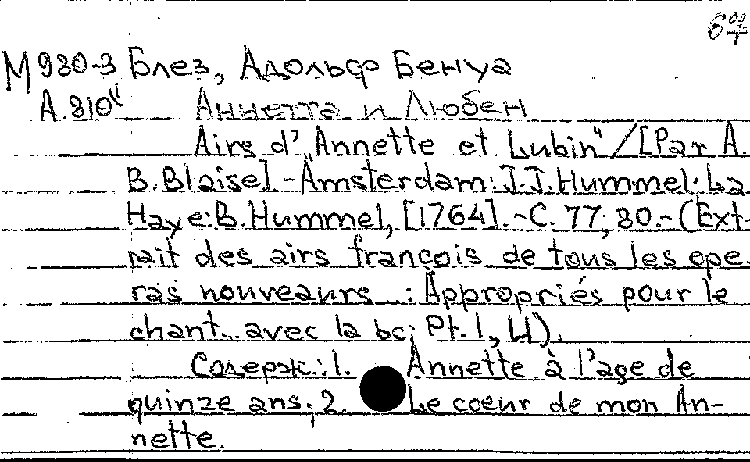 М 980-3 Блез, Адольф Бенуа
А.810" Аннетта и Любен
Airs d'"Annette et Lubin"/[Par A.
B.Blaise].-Amsterdam:J.J.Hummel;La
Haye:B.Hummel,[1764].-С.77,80.-(Ext-
rait des airs françois de tous les ope-
ras nouveaurs : Appropriés pour le
chant avec la bc; Pt.1,
Содерж.:1. Annette à l'age de
quinze ans; 2. Le coeur de mon An-
nette.